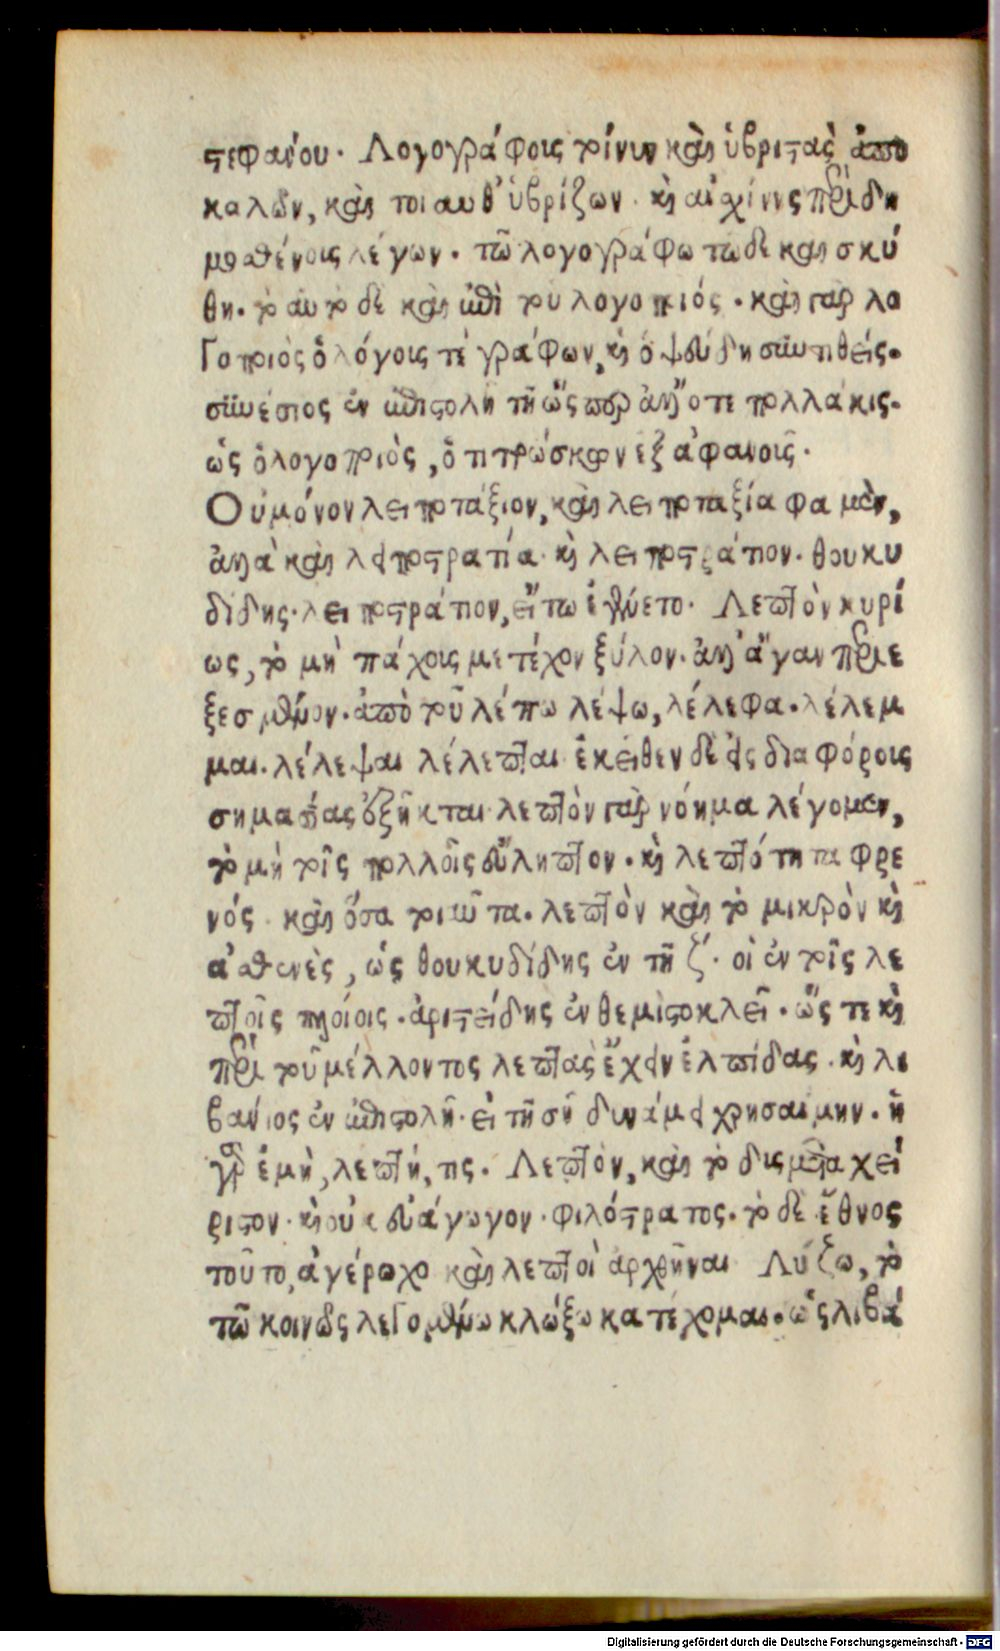 στεφάνου. Λογογράφοις τοίνυν καὶ ὑβριστὰς ἀπο
καλῶν, καὶ τοιαῦθ' ὑβρίζων. καὶ αἰσχίνης περὶ δη
μοσθένοις λέγων. τῶ λογογράφω τῶδε καὶ σκύ
θη. τὸ αυτὸ δὲ καὶ ἐπὶ του λογοποιός. καὶ γὰρ λο
γοποιὸς ὁ λόγοις τὲ γράφων, καὶ ὁ ψευδῆ συντιθείς.
συνέσιος ἐν ἐπιστολῆ τῆ ὥσπερ ἀλλ' ὅτε πολλάκις.
ὡς ὁ λογοποιὸς, ὁ τιτρώσκων ἐξ ἀφανοῖς.
Ου μόνον λειποτάξιον, καὶ λειποταξία φαμὲν,
ἀλλὰ καὶ λειποστρατία. καὶ λειποστράτιον. θουκυ
δίδης. λειποστράτιον, εἴτω ἐγένετο. Λεπτὸν κυρί
ως, τὸ μὴ πάχοις μετέχον ξύλον. ἀλλ' ἄγαν περιε
ξεσμένον. ἀπὸ τοῦ λέπω λέψω, λέλεφα. λέλεμ
μαι. λέλεψαι λέλεπται ἐκεῖθεν δὲ εἰς διαφόροις
σημασίας ἐξῆκται. λεπτὸν γὰρ νόημα λέγομεν,
τὸ μὴ τοῖς πολλοῖς εὔληπτον. καὶ λεπτότητα φρε
νός. καὶ ὅσα τοιαῦτα. λεπτὸν καὶ τὸ μικρὸν καὶ
ἀσθενὲς, ὡς θουκυδίδης ἐν τῆ ζ'. οἱ ἐν τοῖς λε
πτοῖς πλοίοις. ἀριστείδης ἐν θεμιστοκλεῖ. ὥστε καὶ
περὶ τοῦ μέλλοντος λεπτὰς ἔχειν ἐλπίδας. καὶ λι
βάνιος ἐν ἐπιστολῆ. εἰ τῆ σῆ δυνάμει χρησαιμην. ἡ
γὰρ ἐμὴ, λεπτή, τις. Λεπτὸν, καὶ τὸ δισμεταχεί
ριστον. καὶ οὐκ εὐάγωγον. φιλόστρατος. τὸ δὲ ἔθνος
τοῦτο, ἀγέρωχο καὶ λεπτοὶ ἀρχθῆναι Λύζω, τὸ
τῶ κοινῶς λεγομένω κλώξω κατέχομαι. ὡς λιβά
Digitalisierung gefördert durch die Deutsche Forschungsgemeinschaft - DFG